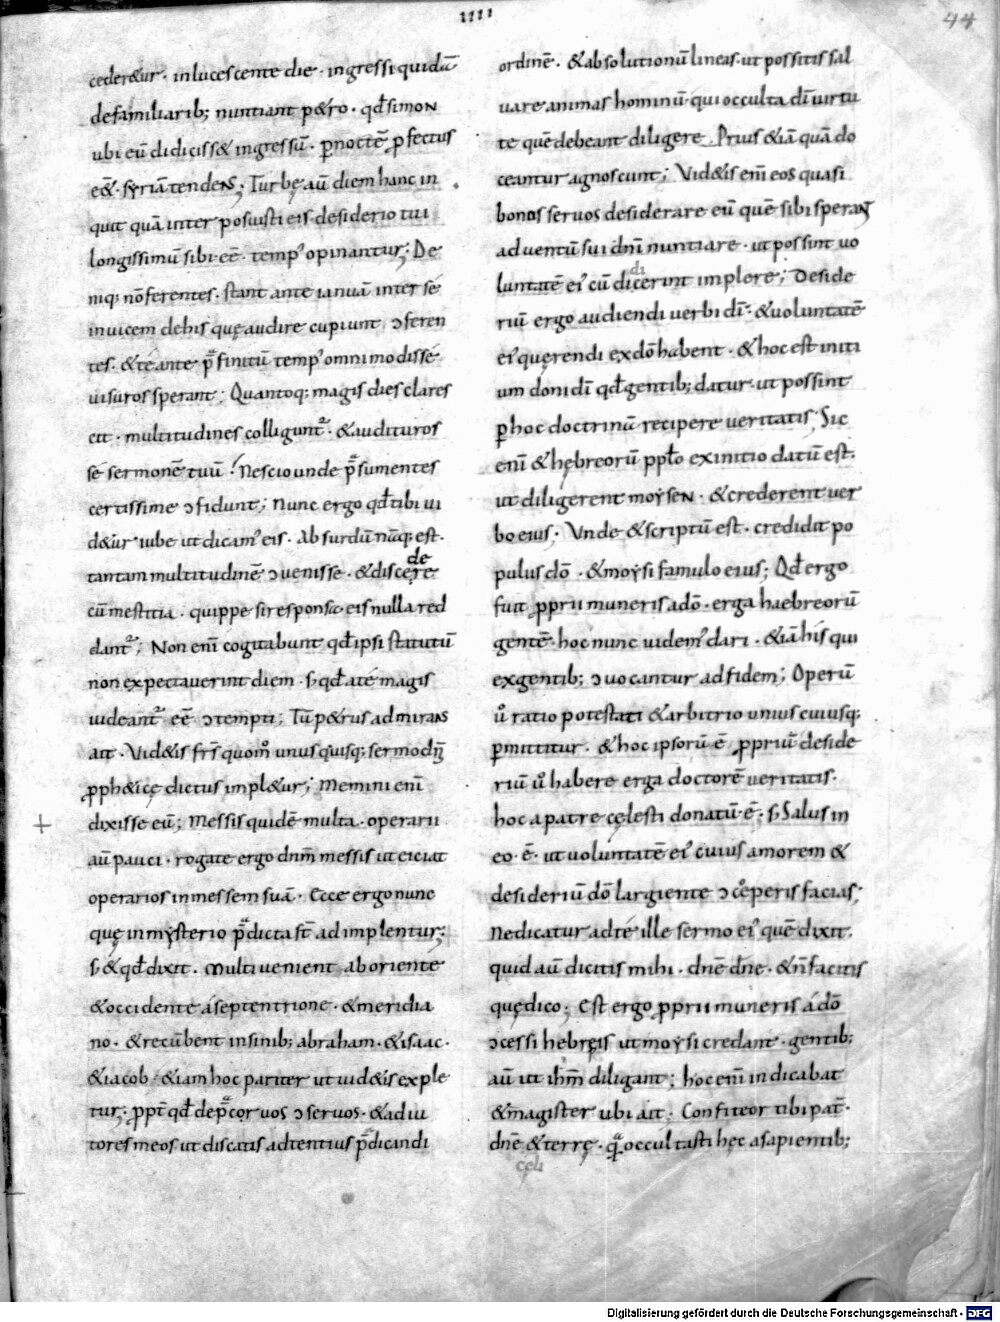 IIII
44
ceder&ur · inlucescente die · ingressi quidā
defamiliarib; nuntiant p&ro · qđ simon
ubi eū didiciss& ingressū · ꝑnoctē ꝓfectus
eē& · syriā tendens; Turbę aū diem hanc in
quit quā inter posuisti eis · desiderio tui
longissimū sibi · eē · temp᾽ opinantur; De
niq; nōferentes · stant ante ianuā inter sé
inuicem dehis quę audire cupiunt ɔferen
tes · & té ante p̄finitū temp᾽ omnimodis sé
uisuros sperant; Quantoq; magis dies clares
cit · multitudines colligunt᷑ · & audituros
sé sermonē tuū · Nescio unde p̄sumentes
certissime ɔfidunt; Nunc ergo qđ tibi ui
d&ur iube ut dicam᾽ eis · Absurdū nāq; est ·
tantam multitudinē ɔuenisse · & discedere
cū mestitia · quippe si responsa eis nulla red
dant᷑; Non enī cogitabunt qđ ipsi statutū
non expectauerint diem · s; qđ a té magis
uideant᷑ eē ɔtempti; Tū p&rus admirans
ait · Vid&is frs̄ quom̊ unus quisq; sermo dn̄i
ꝓph&icę dictus impl&ur; Memini enī
dixisse eū; Messis quidē multa · operarii
aū pauci · rogate ergo dnm̄ messis ut eiciat
operarios in messem suā · Ecce ergo nunc
quę in mysterio p̄dicta st̄ adimplentur;
s; & qđ dixit · Multi uenient ab oriente
& occidente á septentrione · & meridia
no · & recūbent in sinib; abraham · & isaac ·
& iacob · & iam hoc pariter ut uid&is exple
tur; ꝓpt̄ qđ dep̄cor uos ɔseruos · & adiu
tores meos ut discatis adtentius p̄dicandi
ordinē · & absolutionū lineas · ut possitis sal
uare animas hominū · qui occulta dī uirtu
te quē debeant diligere · Prius &iā quā do
ceantur agnoscunt; Vid&is enī eos quasi
bonos seruos desiderare eū quē sibi sperant
aduentū sui dnī nuntiare · ut possint uo
luntatē ei᾽ cū didicerint implere; Deside
riū ergo audiendi uerbi dī · & uoluntatē
ei᾽ querendi ex dō habent · & hoc est initi
um doni dī qđ gentib; datur · ut possint
ꝑ hoc doctrinā recipere ueritatis; Sic
enī & hębreorū pplo ex initio datū est ·
ut diligerent moysen · & crederent uer
bo eius; Vnde & scriptū est · credidit po
pulus dō · & moysi famulo eius; Qđ ergo
fuit ꝓprii muneris a dō · erga haebreorū
gentē · hoc nunc uidem᾽ dari · &iā his qui
ex gentib; ɔuocantur ad fidem; Operū
ů ratio potestati & arbitrio unius cuiusq;
ꝑmittitur · & hoc ipsorū ē ꝓpriū deside
riū ů habere erga doctorē ueritatis ·
hoc a patre cęlesti donatū · ē · s; Salus in
eo · ē · ut uoluntatē ei᾽ cuius amorem &
desideriū dō largiente ɔcęperis facias;
Ne dicatur ad té ille sermo ei᾽ quē dixit ·
quid aū dicitis mihi · dnē dnē · & n̄ facitis
quę dico; Est ergo ꝓprii muneris á dō
ɔcessi hebręis ut moysi credant · gentib;
aū ut ihm̄ diligant; hoc enī indicabat
& magister ubi ait · Confiteor tibi pat̄ ·
dnē & terrę · q̄ occultasti hęc a sapientib;
cęli
Digitalisierung gefördert durch die Deutsche Forschungsgemeinschaft - DFG